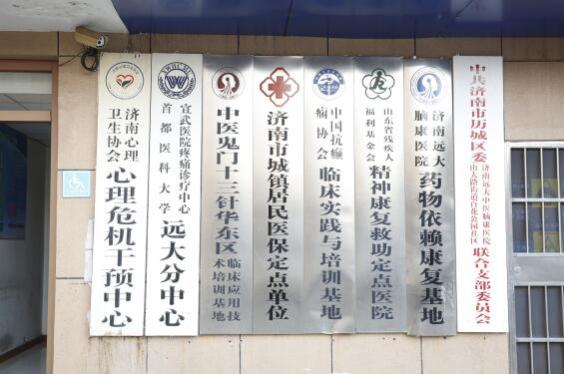 济南心理
卫生协会
心理危机干预中心
首都医科大学
宣武医院疼痛诊疗中心
远大分中心
中医鬼门十三针华东区
临床应用技
术培训基地
济南市城镇居民医保定点单位
中国抗癫
痫协会
临床实践与培训基地
山东省残疾人
福利基金会
精神康复救助定点医院
济南远大
脑康医院
药物依赖康复基地
中共济南市历城区委
济南远大中医脑康医院
山大路街道百花公园社区
联合支部委员会